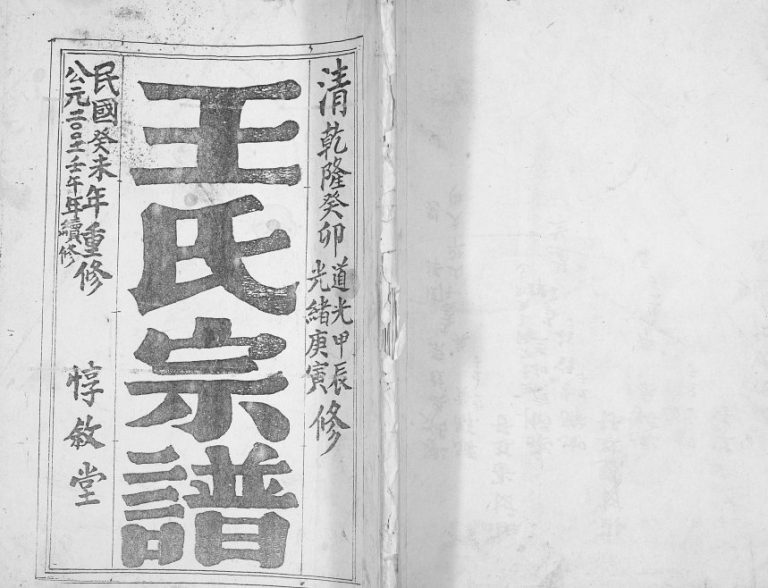 清乾隆癸卯道光甲辰
光緒庚寅修
王氏宗譜
民國癸未年重修
公元二〇〇二壬午年續修
惇敘堂